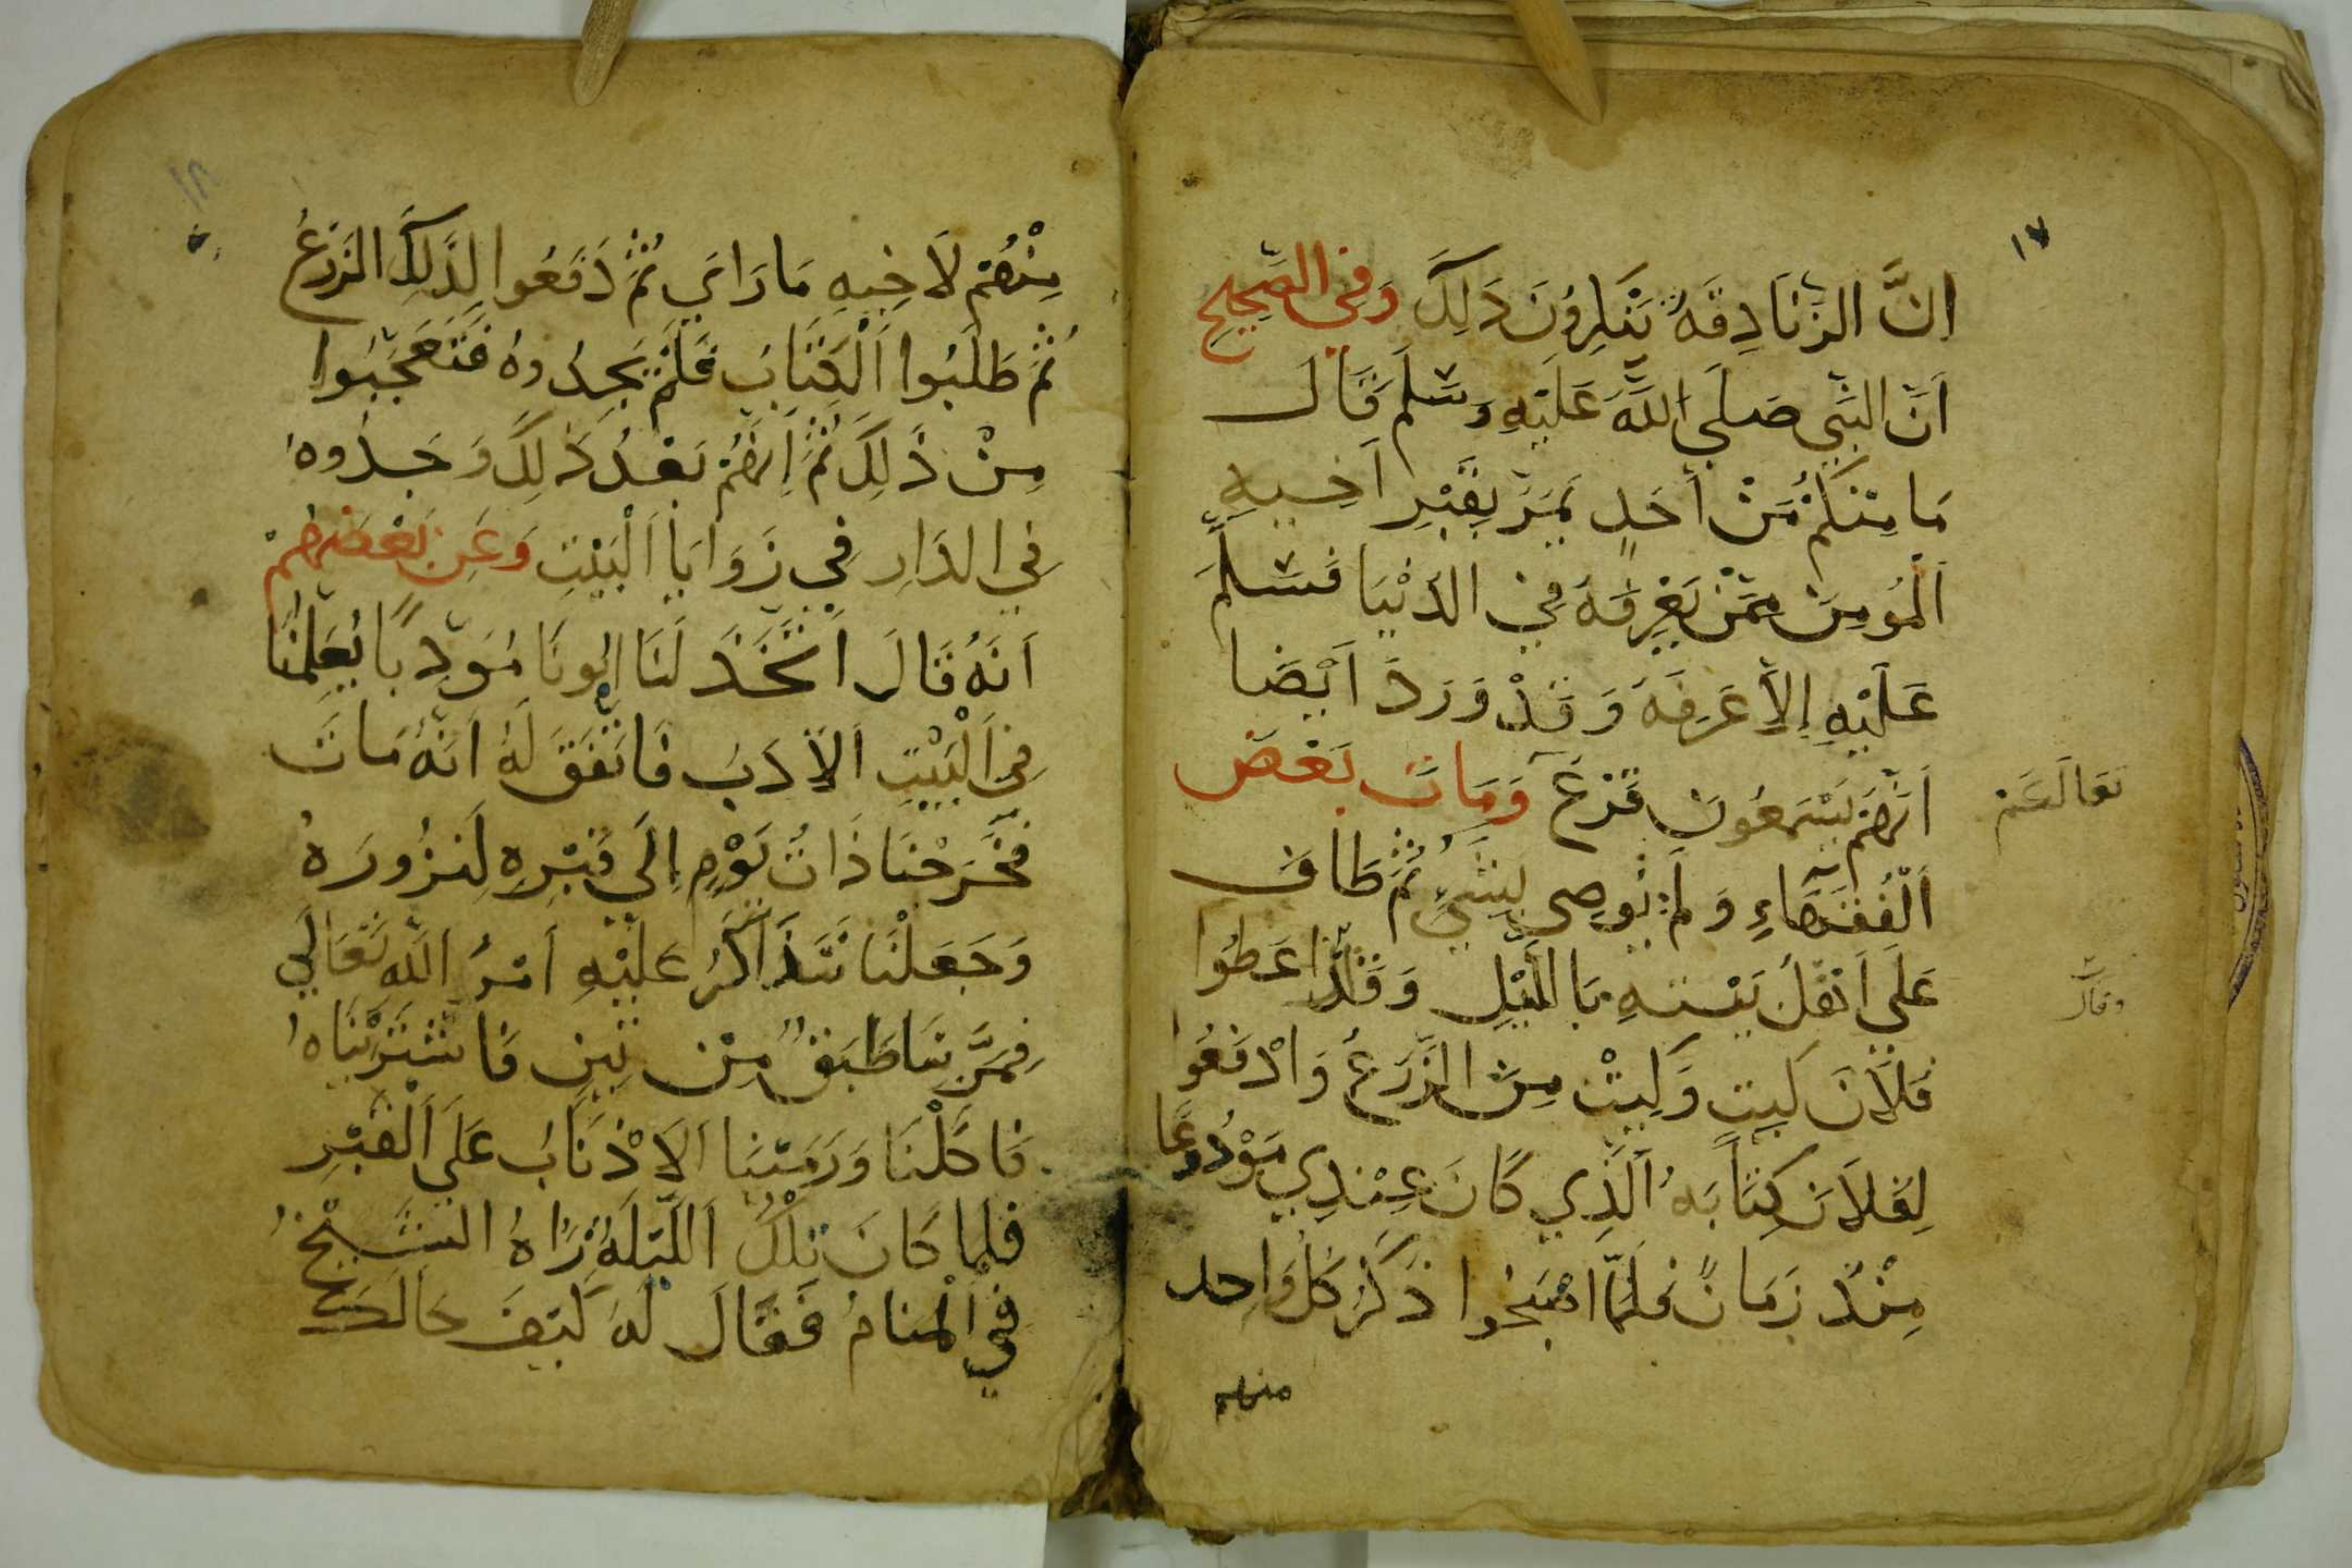 ١٧
ان الزنادقة ينكرون ذلك وفي الصحيح
ان النبي صلي الله عليه وسلم قال
ما منكم من احد يمر بقبر اخيه
المومن ممن يعرفه في الدنيا فسلم
عليه الا عرفه وقد ورد ايضا
انهم يسمعون قرع ومات بعض
الفقهاء ولم يوصي بشي ثم طاف
علي اهل بيته بالليل وقد اعطوا
فلان كيت وكيت من الزرع وادفعوا
لفلان كتابه الذي كان عندي مودوعا
منذ زمان فلما اصبحوا ذكر كل واحد
منهم
نعالهم
وقال
١٨
منهم لاخيه ما راي ثم دفعوا لذلك الزرع
ثم طلبوا الكتاب فلم يجدوه فتعجبوا
من ذلك ثم انهم بعد ذلك وجدوه
في الدار في زوايا البيت وعن بعضهم
انه قال اتخذ لنا ابونا مودبا يعلمنا
في البيت الادب فاتفق له انه مات
فخرجنا ذات يوم الي قبره لنزوره
وجعلنا نتذاكر عليه امر الله تعالي
فمر بنا طبق من تين فاشتريناه
فاكلنا ورمينا الاذناب علي القبر
فلما كان تلك الليلة راه الشيخ
في المنام فقال له كيف حالك